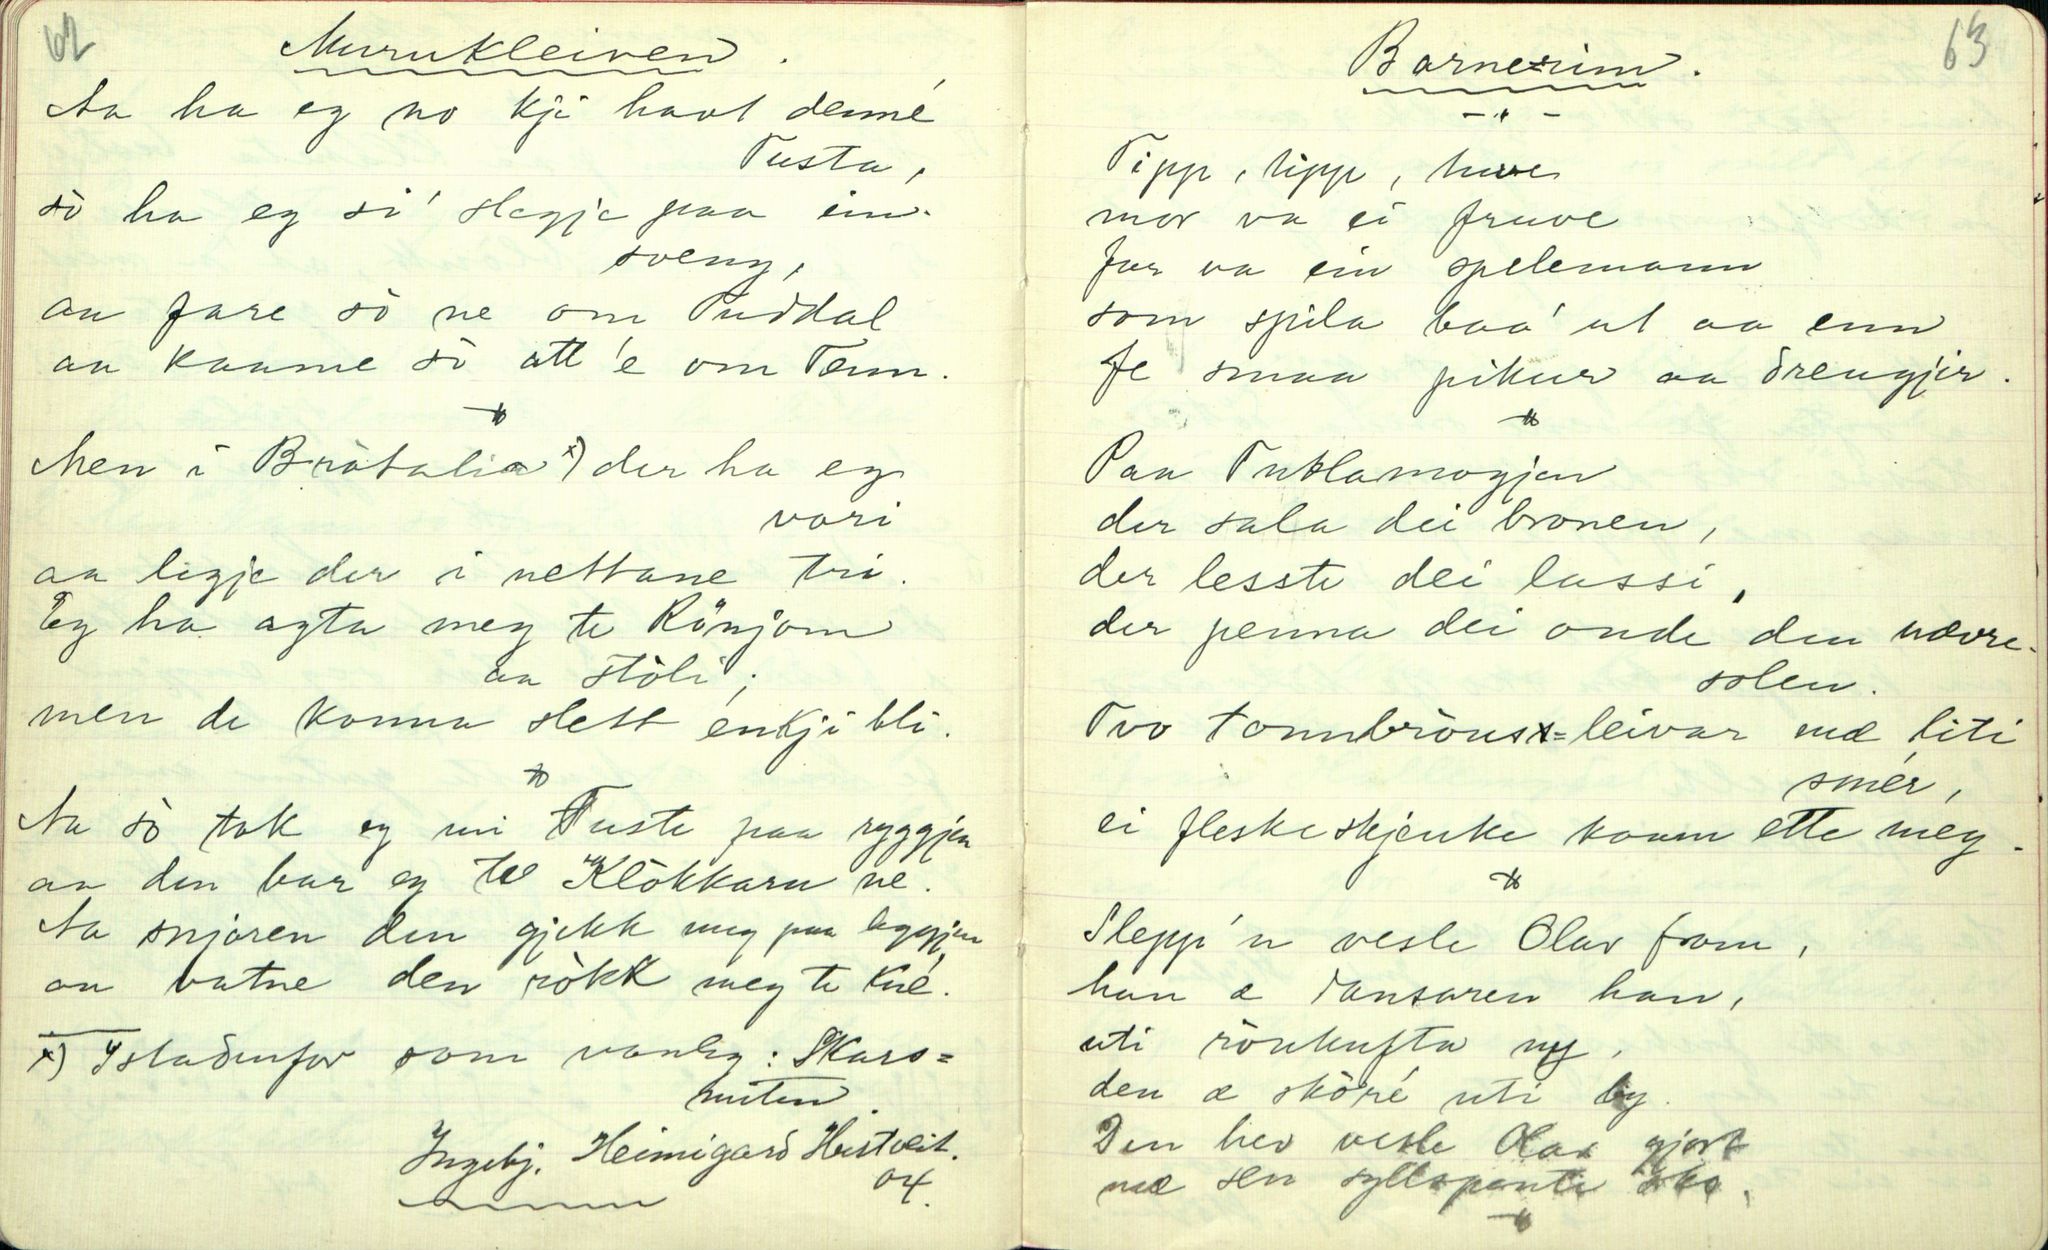 62
Murukleiven.
Aa ha eg no kji havt denné
Tusta,
sò ha eg si' slegje paa ein
sveng,
aa fare sò ne om Tuddal
aa kaame sò att'e om Tenn.
Men i Bròtalia x) der ha eg
vori
aa ligje der i nettane tri.
Eg ha agta meg te Rönjom
aa stöli;
men de konna slett enkji bli.
Aa sò tok eg mi Tuste paa ryggjen
aa den bar eg te Klòkkaru ne.
Aa snjoren den gjekk meg paa leggjen
aa vatne den rökk meg te kné.
x) Istadenfor som vanleg: Skars=
nuten.
Ingebj. Heimigard Hestveit.
04.
63
Barnerim.
Tipp, tipp, tuve
mor va ei fruve
far va ein spelemann
som spila baa' ut aa enn
fe smaa pikur aa drengjir.
Paa Tuklamogjen
der sala dei bronen,
der lesste dei lassi,
der penna dei onde den nævre-
solen.
Tvo tonnbröus=leivar mæ liti
smér,
ei fleskeskjenke kaam ette meg.
Slepp'n vesle Olav fram,
han æ dansaren han,
uti rönkufta ny,
den æ sköré uti by.
Den hev vesle Olav gjort
mæ sen syllspente sko.